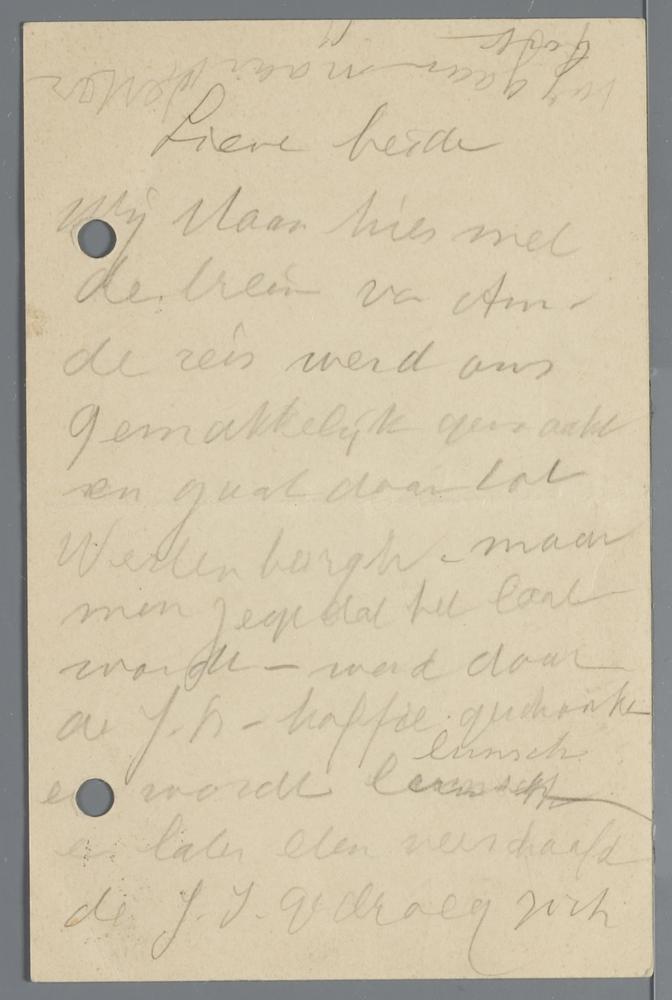 wij gaan naar
Lieve beide
Wij staan hier met
de trein van Am-
de reis werd ons
gemakkelijk gemaakt
en gaat door tot
Westerborgh - maar
men zegt dat het laat
wordt - werd door
de J.R - koffie geschonken
en wordt lunsch
en later eten verschaft
de J.J. gedraeg zich